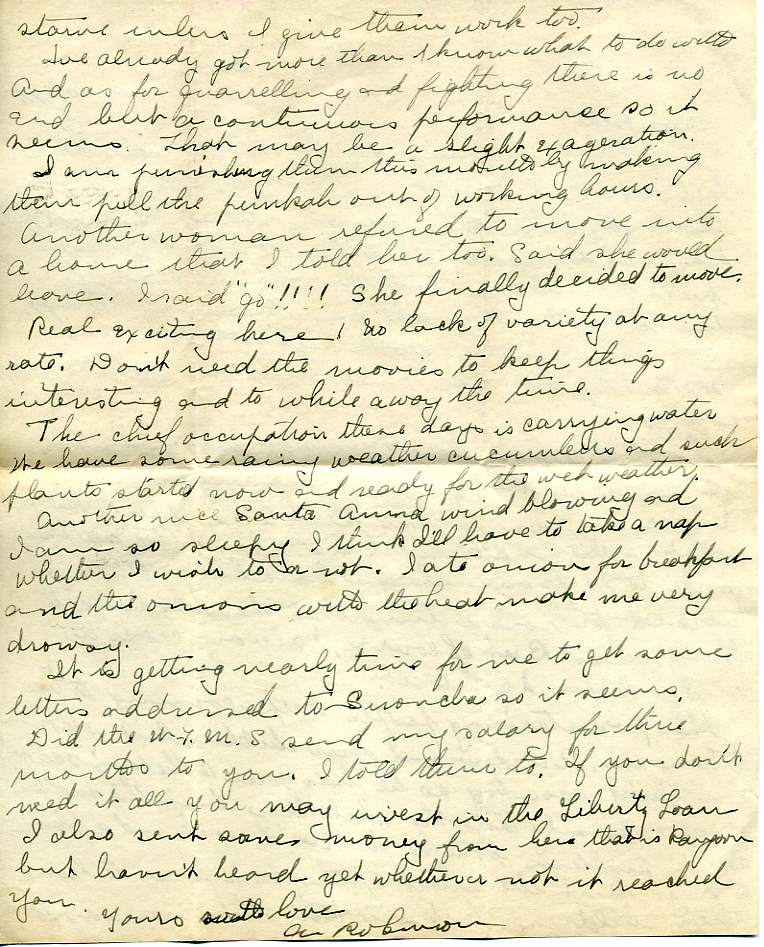 starve unless I give them work too.
I've already got more than I know what to do with
And as for quarrelling and fighting there is no
end but a continuous performance so it
seems. That may be a slight exageration.
I am punishing them this month by making
them pull the punkah out of working hours.
Another woman refused to move into
a house that I told her too. Said she would
leave. I said "go"!!!! She finally decided to move.
Real exciting here! No lack of variety at any
rate. Don't need the movies to keep things
interesting and to while away the time.
The chief occupation these days is carrying water
We have some rainy weather cucumbers and such
plants started now and ready for the wet weather.
Another nice Santa Anna wind blowing and
I am so sleepy I think I'll have to take a nap
whether I wish to or not. I ate onions for breakfast
and the onions with the heat make me very
drowsy.
It is getting nearly time for me to get some
letters addressed to so it seems.
Did the W.F.M.S send my salary for three
months to you. I told them to. If you don't
need it all you may invest in the Liberty Loan
I also sent some money from here that is
but havn't heard yet whether or not it reached
you.
Yours with love
Robinson